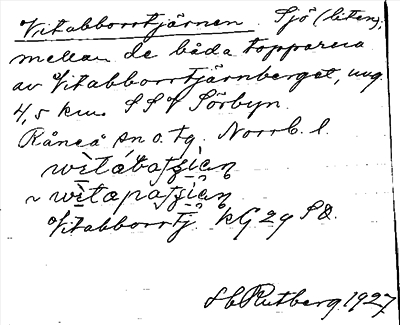 Vitabborrtjärnen. Sjö (liten),
mellan de båda topparna
av Vitabborrtjärnberget, ung.
4,5 km. SSV Sörbyn.
Råneå sn o. tg. Norrb. l.
Vitabborrtj. kG 29 SO.
H Rutberg 1927